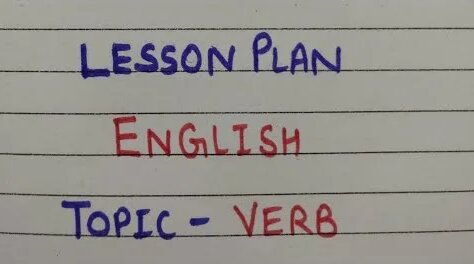 LESSON PLAN
ENGLISH
TOPIC - VERB